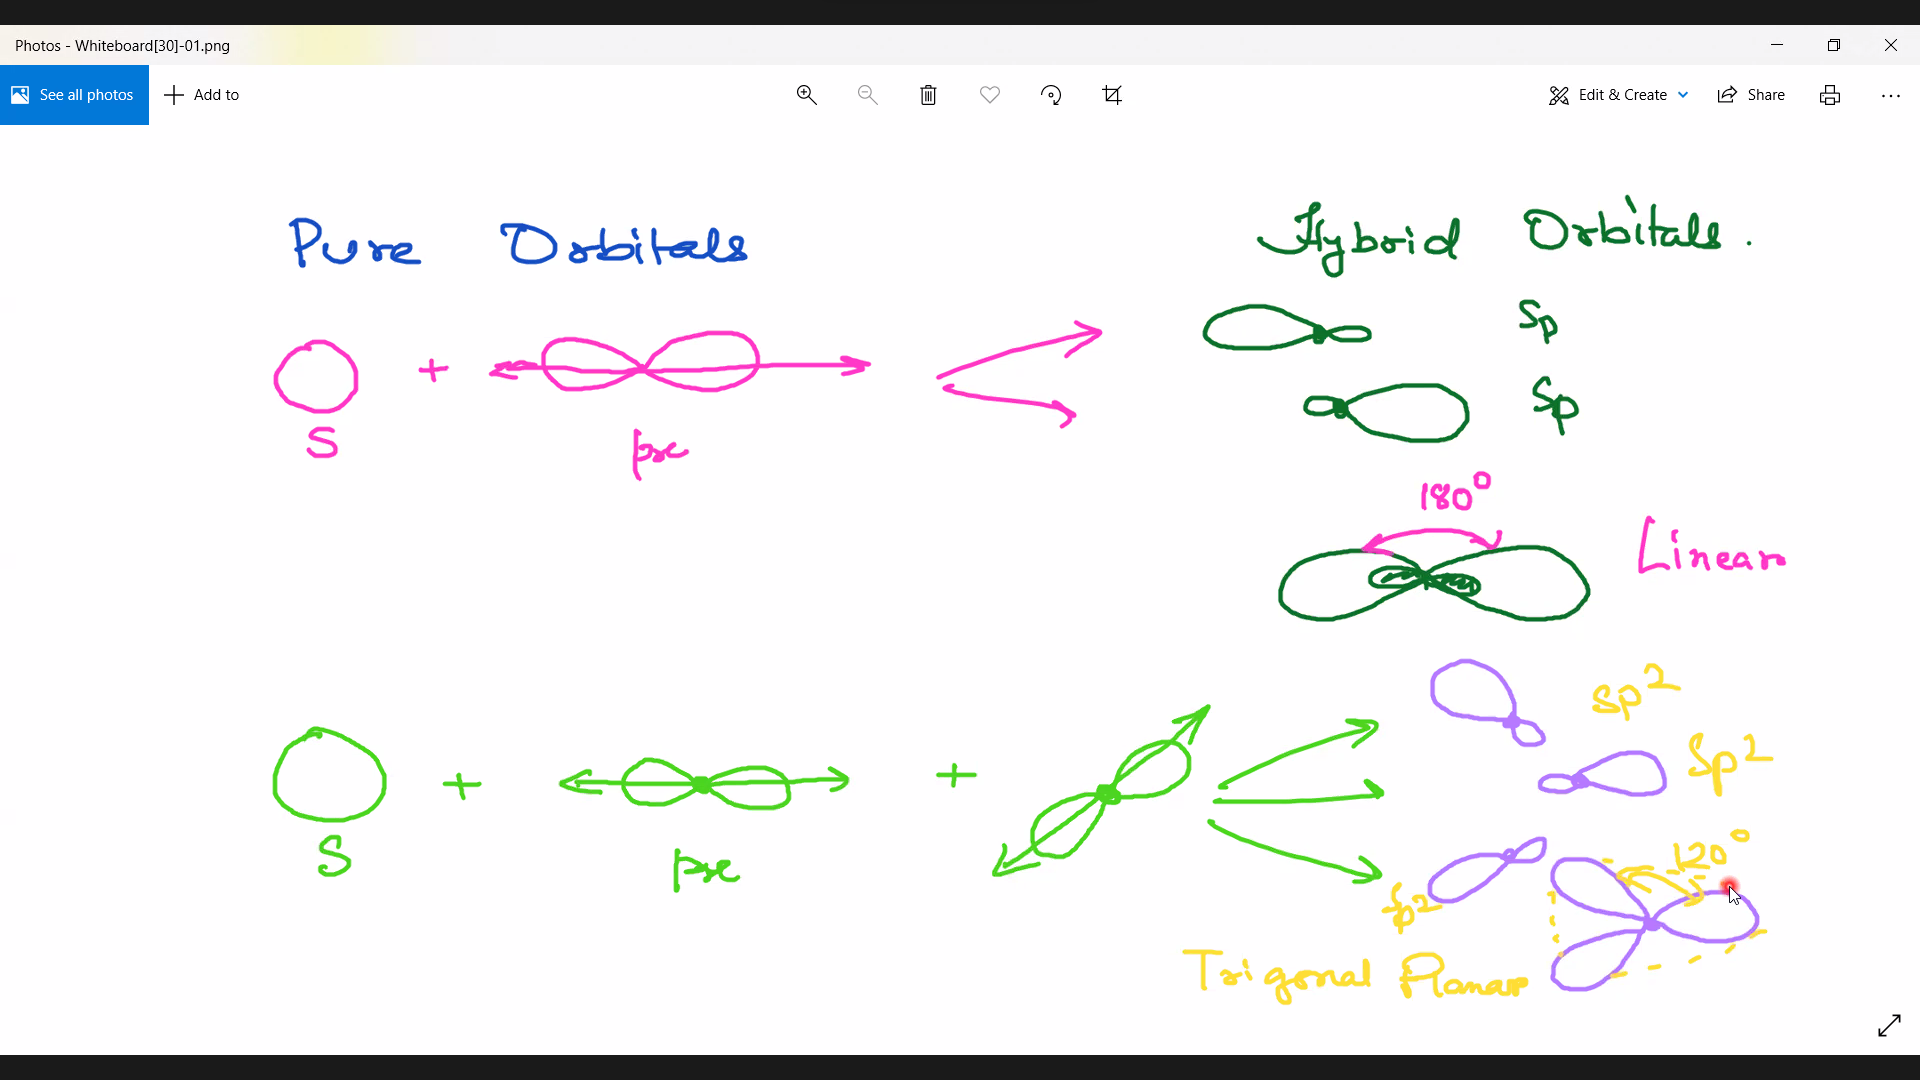 Photos - Whiteboard[30]-01.png
See all photos
Add to
Edit & Create
Share
Pure Orbitals
Hybrid Orbitals.
Sp
S + px
Sp
180°
Linear
Sp²
S + px +
Sp²
120°
Sp²
Trigonal Planar